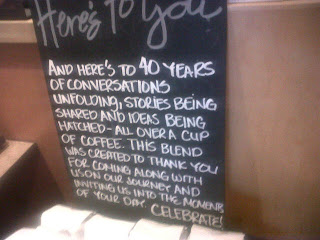 Here's To You
AND HERE'S TO 40 YEARS
OF CONVERSATIONS
UNFOLDING, STORIES BEING
SHARED AND IDEAS BEING
HATCHED - ALL OVER A CUP
OF COFFEE. THIS BLEND
WAS CREATED TO THANK YOU
FOR COMING ALONG WITH
US ON OUR JOURNEY AND
INVITING US INTO THE MOMENTS
OF YOUR DAY. CELEBRATE!